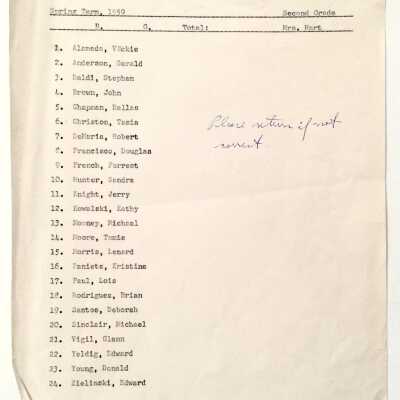 Spring Term, 1960 Second Grade
B. G. Total: Mrs. Hart
1. Alameda, Vickie
2. Anderson, Gerald
3. Baldi, Stephan
4. Brown, John
5. Chapman, Dallas
6. Christon, Tasia
7. DeMeris, Robert
8. Francisco, Douglas
9. French, Forrest
10. Hunter, Sandra
11. Knight, Jerry
12. Kowalski, Kathy
13. Mooney, Michael
14. Moore, Tamie
15. Morris, Lenard
16. Paniets, Kristine
17. Paul, Lois
18. Rodriguez, Brian
19. Santos, Deborah
20. Sinclair, Michael
21. Vigil, Glenn
22. Yeldig, Edward
23. Young, Donald
24. Zielinski, Edward
Please return if not
correct.